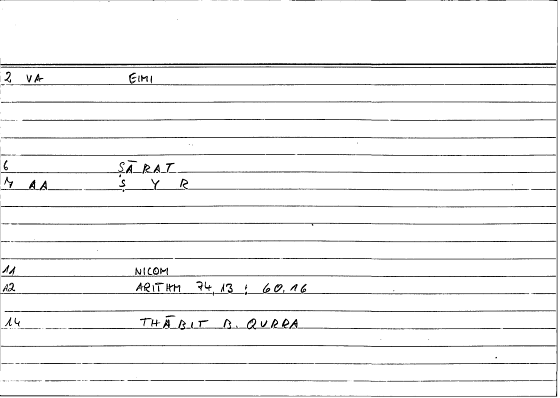 2 VA EIMI
6 ṢĀRAT
7 AA Ṣ Y R
11 NICOM
12 ARITHM 74,13 ; 60,16
14 THĀBIT B. QURRA